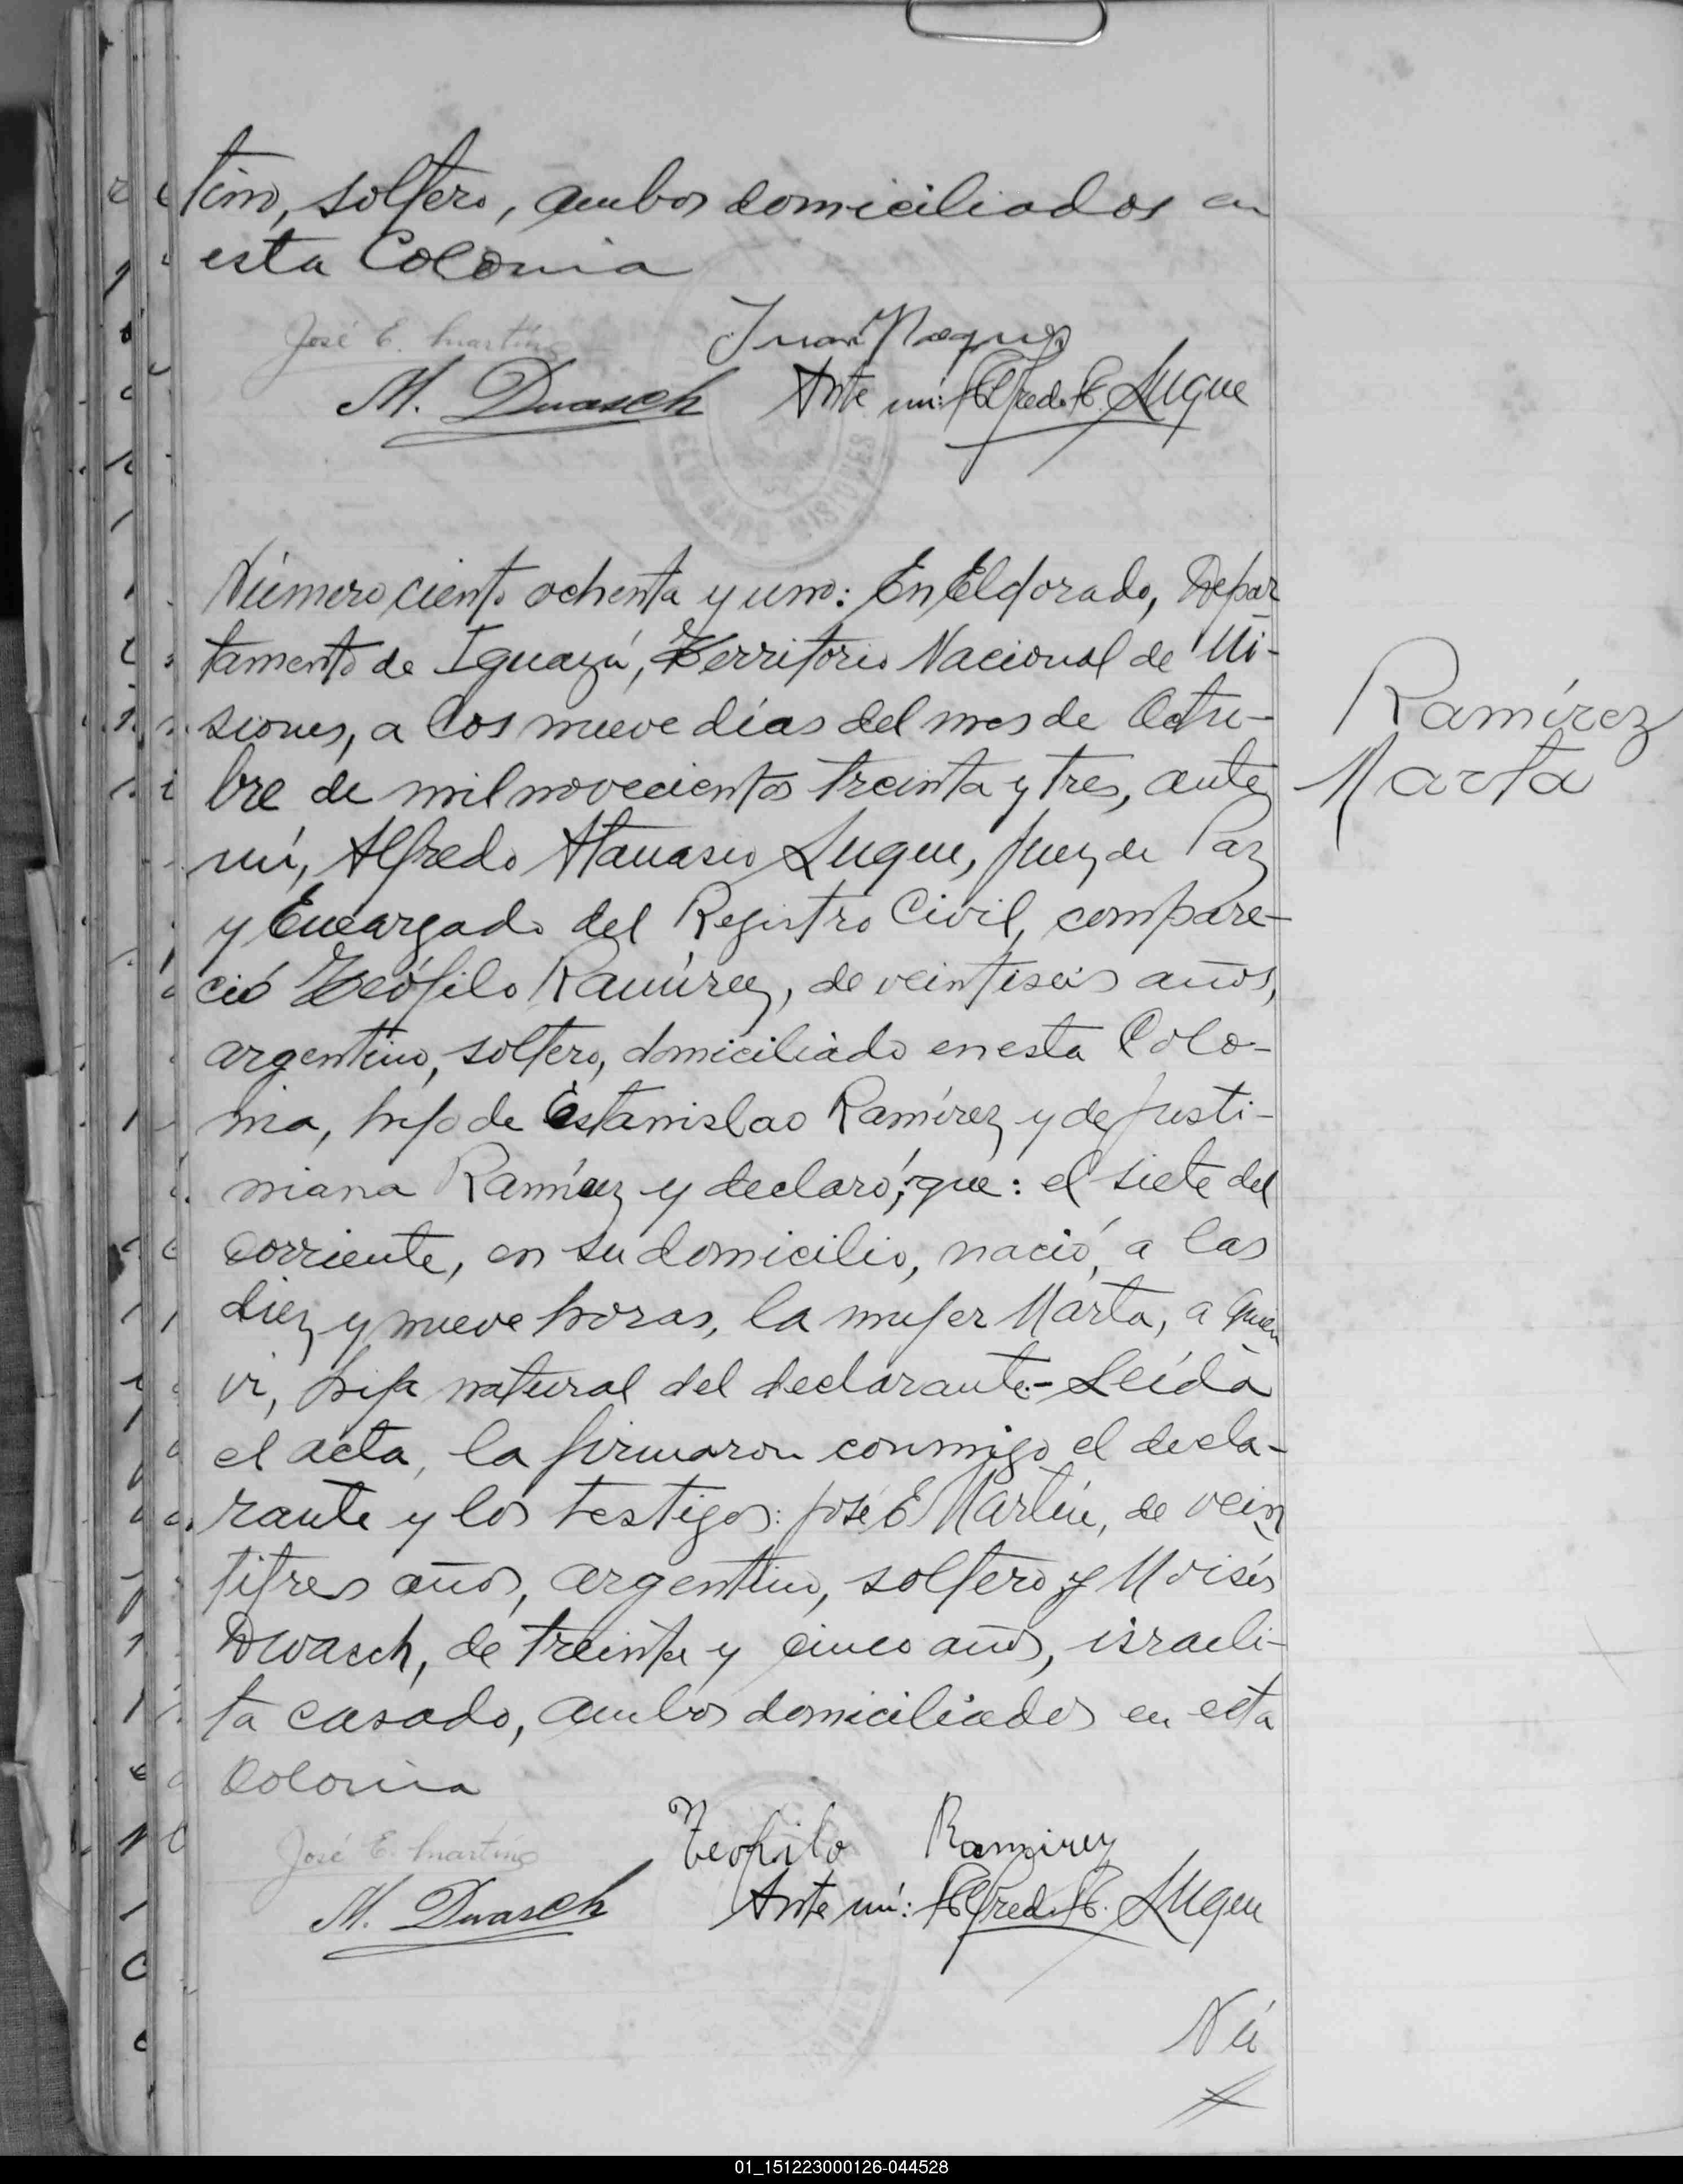 tino, soltero, ambos domiciliados en
esta Colonia
José E. Martínez
M. Dwasch
Ante mí: Alfredo A. Luque
ELDORADO MISIONES
Número ciento ochenta y uno: En Eldorado, Depar
tamento de Iguazú, Territorio Nacional de Mi-
siones, a los nueve días del mes de Octu-
bre de mil novecientos treinta y tres, ante
mí, Alfredo Atanasio Luque, Juez de Paz
y Encargado del Registro Civil, compare-
ció Teófilo Ramírez, de veintiseis años,
argentino, soltero, domiciliado en esta Colo-
nia, hijo de Estanislao Ramírez y de Justi-
niana Ramírez y declaró; que: el siete del
corriente, en su domicilio, nació, a las
diez y nueve horas, la mujer Marta, a quien
vi, hija natural del declarante.- Leída
el acta, la firmaron conmigo el decla-
rante y los testigos: José E. Martín, de vein
titres años, argentino, soltero y Moisés
Dwasch, de treinta y cinco años, israeli-
ta casado, ambos domiciliados en esta
Colonia
Ramírez
Marta
José E. Martínez
Teofilo Ramirez
M. Dwasch
Ante mí: Alfredo A. Luque
Nú
01_151223000126-044528